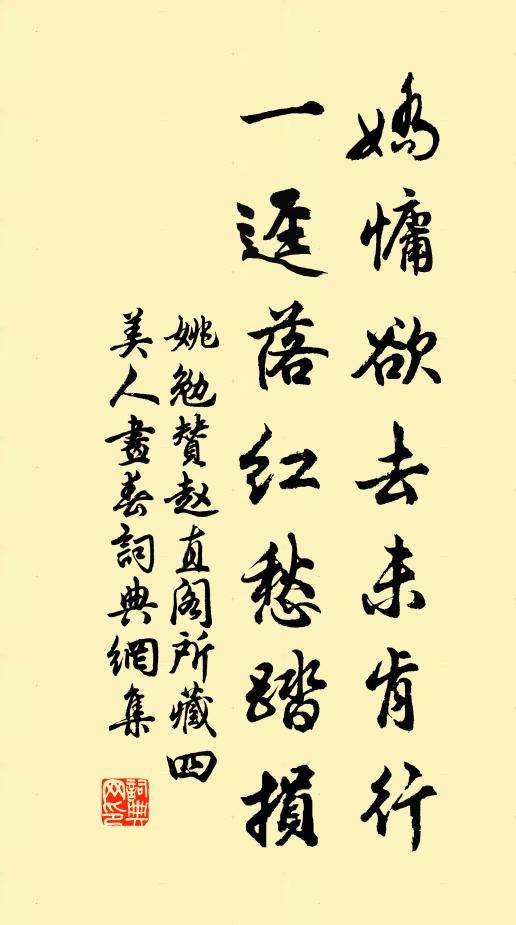 嬌慵欲去未肯行
一逕落红愁踏損
姚勉赞赵直阁所藏四
美人畫春詞典網集
詞典网印